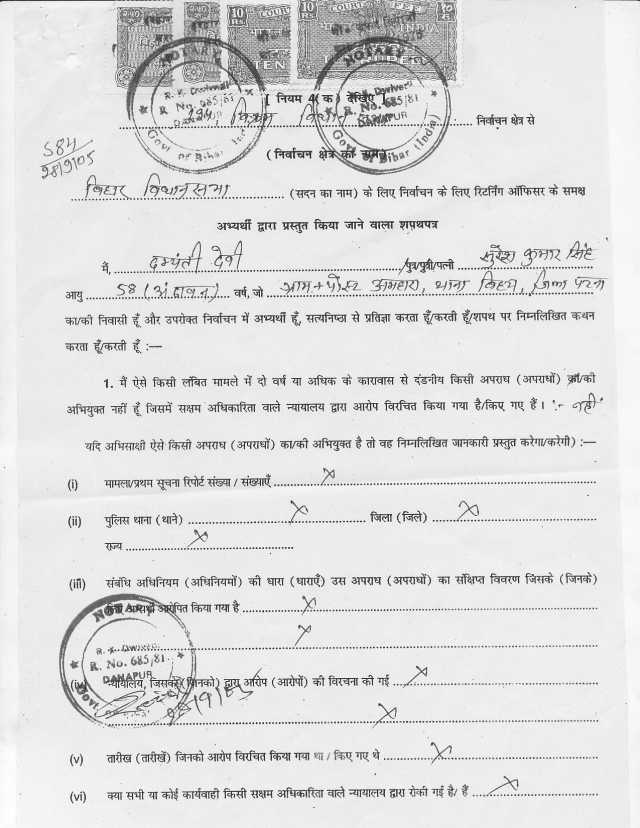 10 Rs. COURT FEE
INDIA
TEN
NOTARY
R. K. Dwivedi
R. No. 685/81
DANAPUR
Govt. of Bihar (India)
NOTARY
R. K. Dwivedi
R. No. 685/81
DANAPUR
Govt. of Bihar (India)
[ नियम 4 (क) देखिए ]
विक्रम विधान सभा निर्वाचन क्षेत्र से
584
28/9/05
(निर्वाचन क्षेत्र का नाम)
बिहार विधानसभा (सदन का नाम) के लिए निर्वाचन के लिए रिटर्निंग ऑफिसर के समक्ष
अभ्यर्थी द्वारा प्रस्तुत किया जाने वाला शपथपत्र
मैं, दमयंती देवी /पुत्र/पुत्री/पत्नी सुरेश कुमार सिंह
आयु 58 (अंठावन) वर्ष, जो ग्राम + पोस्ट अमहारा, थाना बिहटा, जिला पटना
का/की निवासी हूँ और उपरोक्त निर्वाचन में अभ्यर्थी हूँ, सत्यनिष्ठा से प्रतिज्ञा करता हूँ/करती हूँ/शपथ पर निम्नलिखित कथन
करता हूँ/करती हूँ :—
1. मैं ऐसे किसी लंबित मामले में दो वर्ष या अधिक के कारावास से दंडनीय किसी अपराध (अपराधों) का/की
अभियुक्त नहीं हूँ जिसमें सक्षम अधिकारिता वाले न्यायालय द्वारा आरोप विरचित किया गया है/किए गए हैं । :- नहीं
यदि अभिसाक्षी ऐसे किसी अपराध (अपराधों) का/की अभियुक्त है तो वह निम्नलिखित जानकारी प्रस्तुत करेगा/करेगी) :—
(i) मामला/प्रथम सूचना रिपोर्ट संख्या / संख्याएँ X
(ii) पुलिस थाना (थाने) X जिला (जिले) X
राज्य X
(iii) संबंधि अधिनियम (अधिनियमों) की धारा (धाराएँ) उस अपराध (अपराधों) का संक्षिप्त विवरण जिसके (जिनके)
लिए अभ्यर्थी आरोपित किया गया है X
X
NOTARY
R. K. Dwivedi
R. No. 685/81
DANAPUR
Govt.
28/9/05
(iv) न्यायालय, जिसके (जिनको) द्वारा आरोप (आरोपों) की विरचना की गई X
X
(v) तारीख (तारीखें) जिनको आरोप विरचित किया गया था / किए गए थे X
(vi) क्या सभी या कोई कार्यवाही किसी सक्षम अधिकारिता वाले न्यायालय द्वारा रोकी गई है/ हैं X